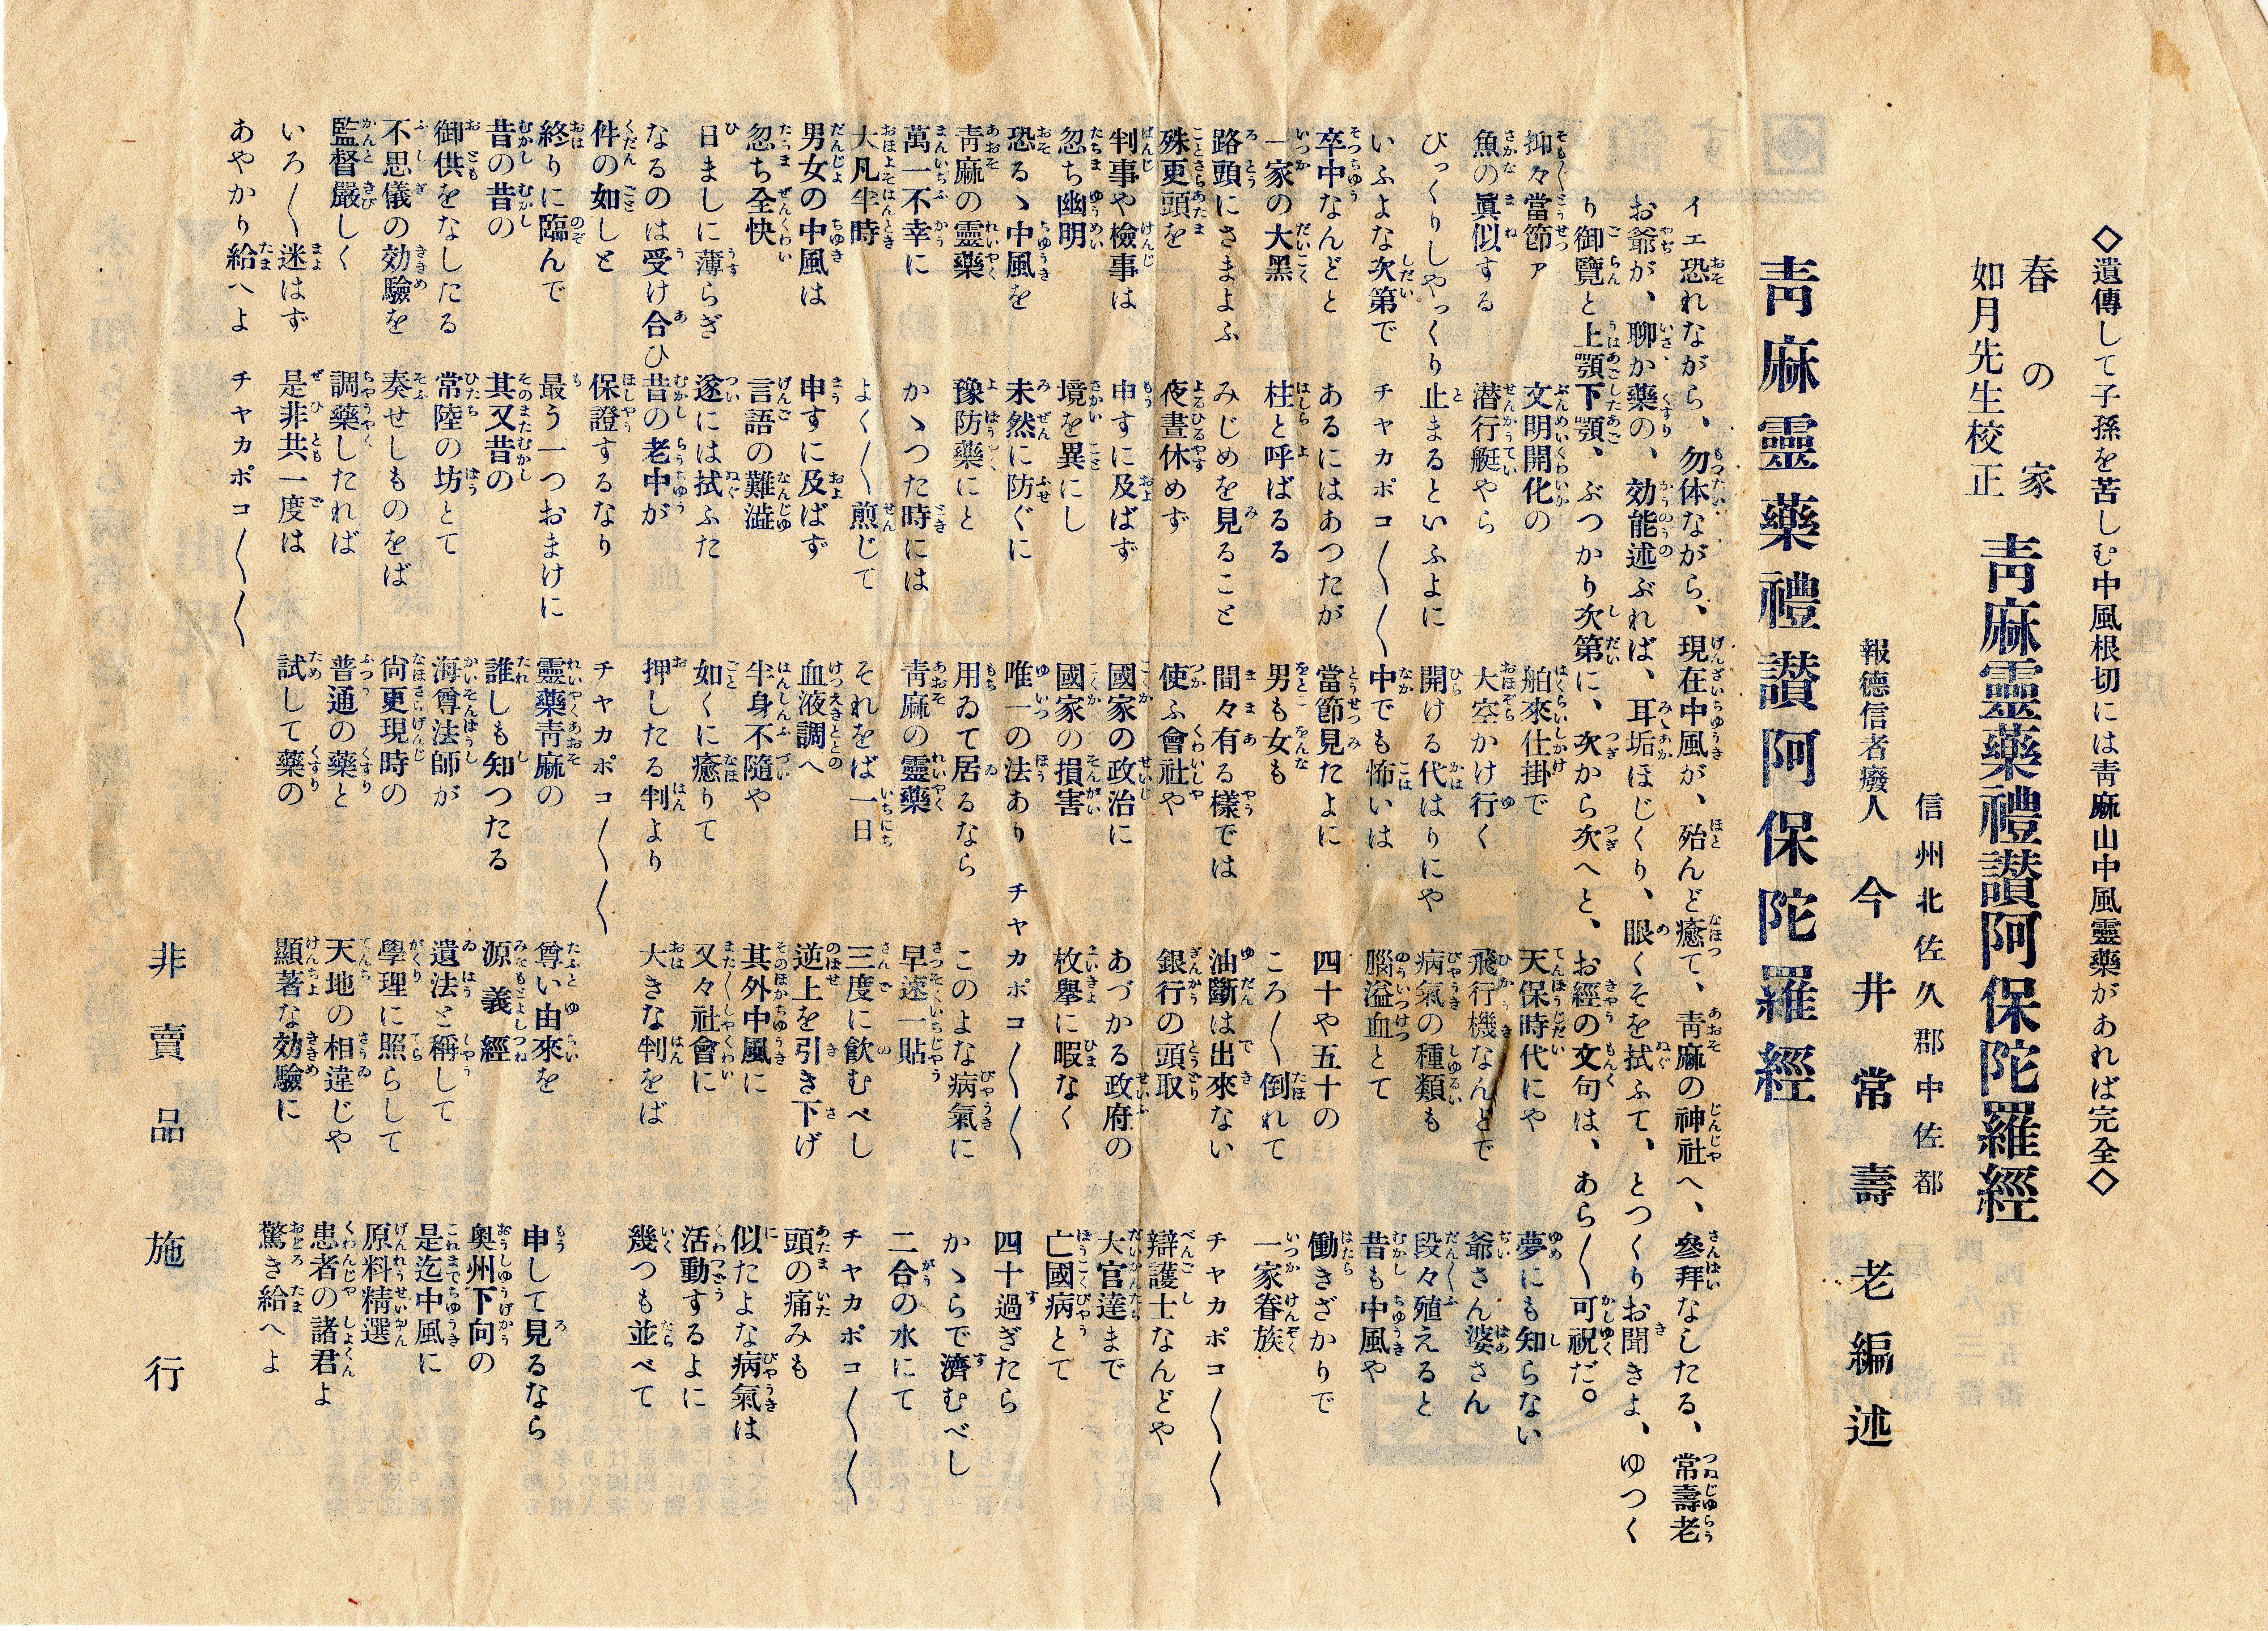 ◇遺傳して子孫を苦しむ中風根切には靑麻山中風靈藥があれば完全◇
春の家
如月先生校正
靑麻靈藥禮讃阿保陀羅經
信州北佐久郡中佐都
報德信者癈人 今井常壽老編述
靑麻靈藥禮讃阿保陀羅經
ィエ恐れながら、勿体ながら、現在中風が、殆んど癒て、靑麻の神社へ、參拜なしたる、常壽老
お爺が、聊か藥の、効能述ぶれば、耳垢ほじくり、眼くそを拭ふて、とつくりお聞きよ、ゆつく
り御覽と上顎下顎、ぶつかり次第に、次から次へと、お經の文句は、あら〱可祝だ。
抑々當節ァ 文明開化の 舶來仕掛で 天保時代にや 夢にも知らない
魚の眞似する 潜行艇やら 大空かけ行く 飛行機なんどで 爺さん婆さん
びっくりしやっくり 止まるといふよに 開ける代はりにや 病氣の種類も 段々殖えると
いふよな次第で チャカポコ〱〱 中でも怖いは 腦溢血とて 昔も中風や
卒中なんどと あるにはあつたが 當節見たよに 四十や五十の 働きざかりで
一家の大黑 柱と呼ばるる 男も女も ころ〱倒れて 一家眷族
路頭にさまよふ みじめを見ること 間々有る樣では 油斷は出來ない チャカポコ〱〱
殊更頭を 夜晝休めず 使ふ會社や 銀行の頭取 辯護士なんどや
判事や檢事は 申すに及ばず 國家の政治に あづかる政府の 大官達まで
忽ち幽明 境を異にし 國家の損害 枚擧に暇なく 亡國病とて
恐るゝ中風を 未然に防ぐに 唯一の法あり チャカポコ〱〱 四十過ぎたら
靑麻の靈藥 豫防藥にと 用ゐて居るなら このよな病氣に かゝらで濟むべし
萬一不幸に かゝつた時には 靑麻の靈藥 早速一貼 二合の水にて
大凡半時 よく〱煎じて それをば一日 三度に飮むべし チャカポコ〱〱
男女の中風は 申すに及ばず 血液調へ 逆上を引き下げ 頭の痛みも
忽ち全快 言語の難澁 半身不隨や 其外中風に 似たよな病氣は
日ましに薄らぎ 遂には拭ふた 如くに癒りて 又々社會に 活動するよに
なるのは受け合ひ 昔の老中が 押したる判より 大きな判をば 幾つも並べて
件の如しと 保證するなり チャカポコ〱〱
終りに臨んで 最う一つおまけに 靈藥靑麻の 尊い由來を 申して見るなら
昔の昔の 其又昔の 誰しも知つたる 源義經 奥州下向の
御供をなしたる 常陸の坊とて 海尊法師が 遺法と稱して 是迄中風に
不思儀の効驗を 奏せしものをば 尙更現時の 學理に照らして 原料精選
監督嚴しく 調藥したれば 普通の藥と 天地の相違じや 患者の諸君よ
いろ〱迷はず 是非共一度は 試して藥の 顯著な効驗に 驚き給へよ
あやかり給ハよ チャカポコ〱〱
非賣品 施行